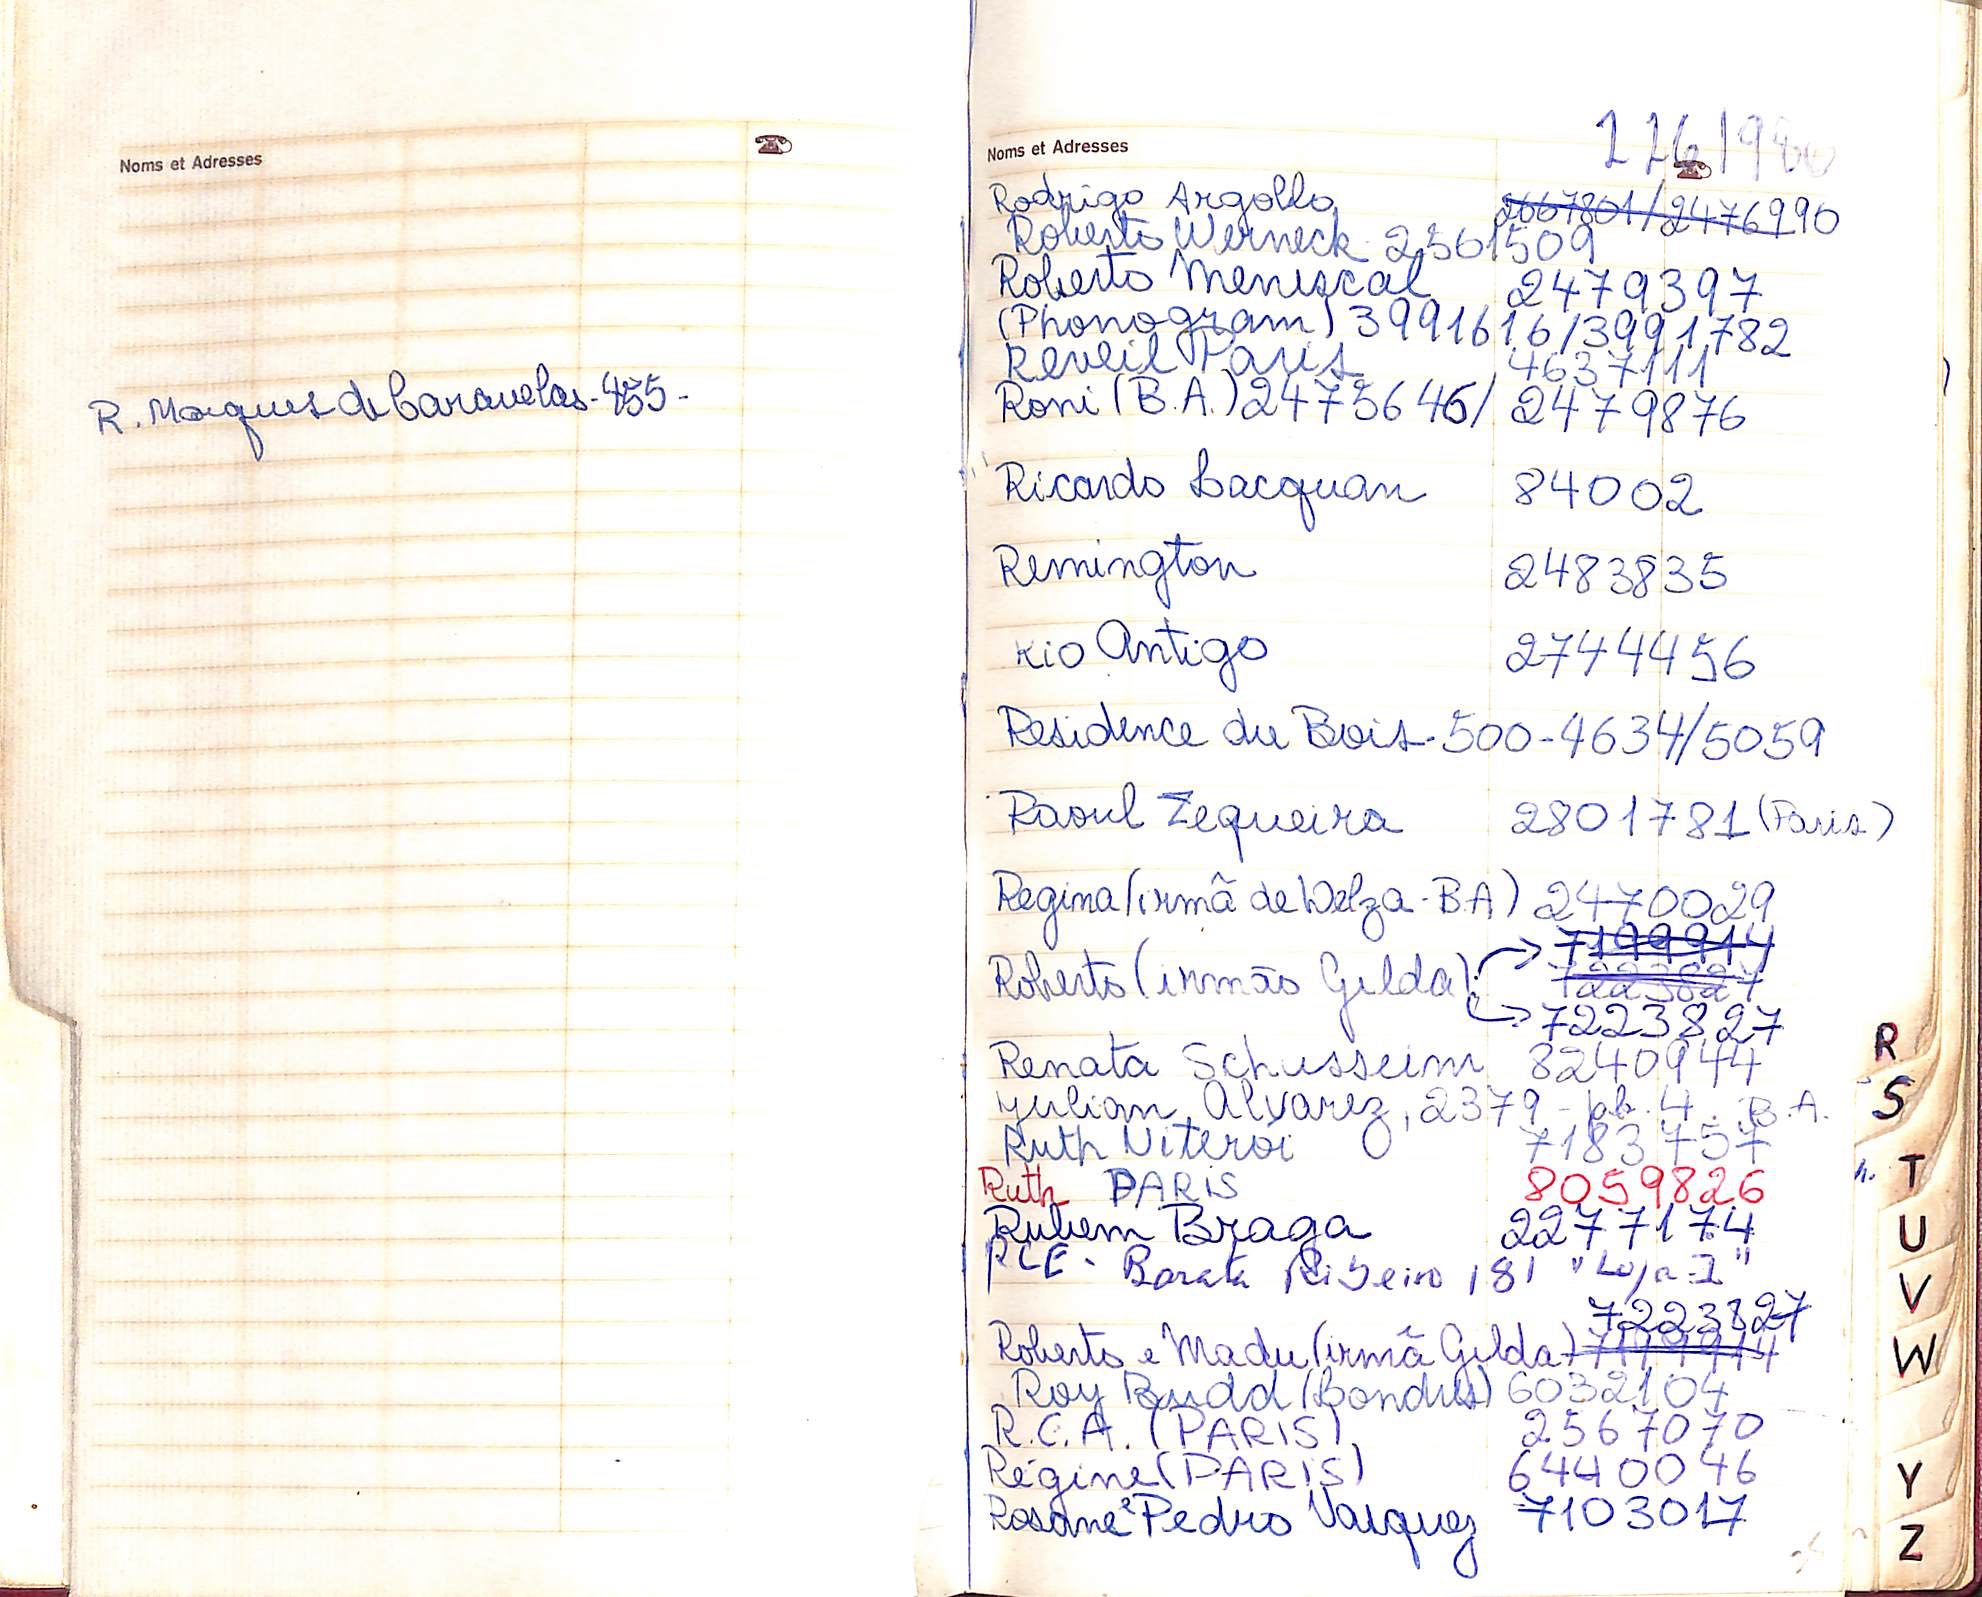 Noms et Adresses
R. Marques de Caravelas - 455 -
Noms et Adresses
2261980
Rodrigo Argollo 2667801/2476990
Roberto Werneck 2561509
Roberto Meniscal 2479397
(Phonogram) 3991616/3991782
Reveil Paris 4637111
Roni (B.A.) 2475646/ 2479876
Ricardo Lacquan 84002
Remington 2483835
Rio Antigo 2744456
Residence du Bois - 500-4634/5059
Raoul Zequeira 2801781 (Paris)
Regina (irmã de Delza - B.A) 2470029
7199914
Roberto (irmão Gilda) 7223827
7223827
Renata Schusseim 8240944
Julian Alvarez, 2379 - pb. 4. B.A.
Ruth Niteroi 7183757
Ruth PARIS 8059826
Rubem Braga 2277174
RLE - Barata Ribeiro 181 "Loja-I"
7223827
Roberto e Madu (irmã Gilda) 7199914
Roy Budd (Londres) 6032104
R.C.A. (PARIS) 2567070
Régine (PARIS) 6440046
Rosane e Pedro Vasquez 7103017
R
S
T
U
V
W
Y
Z